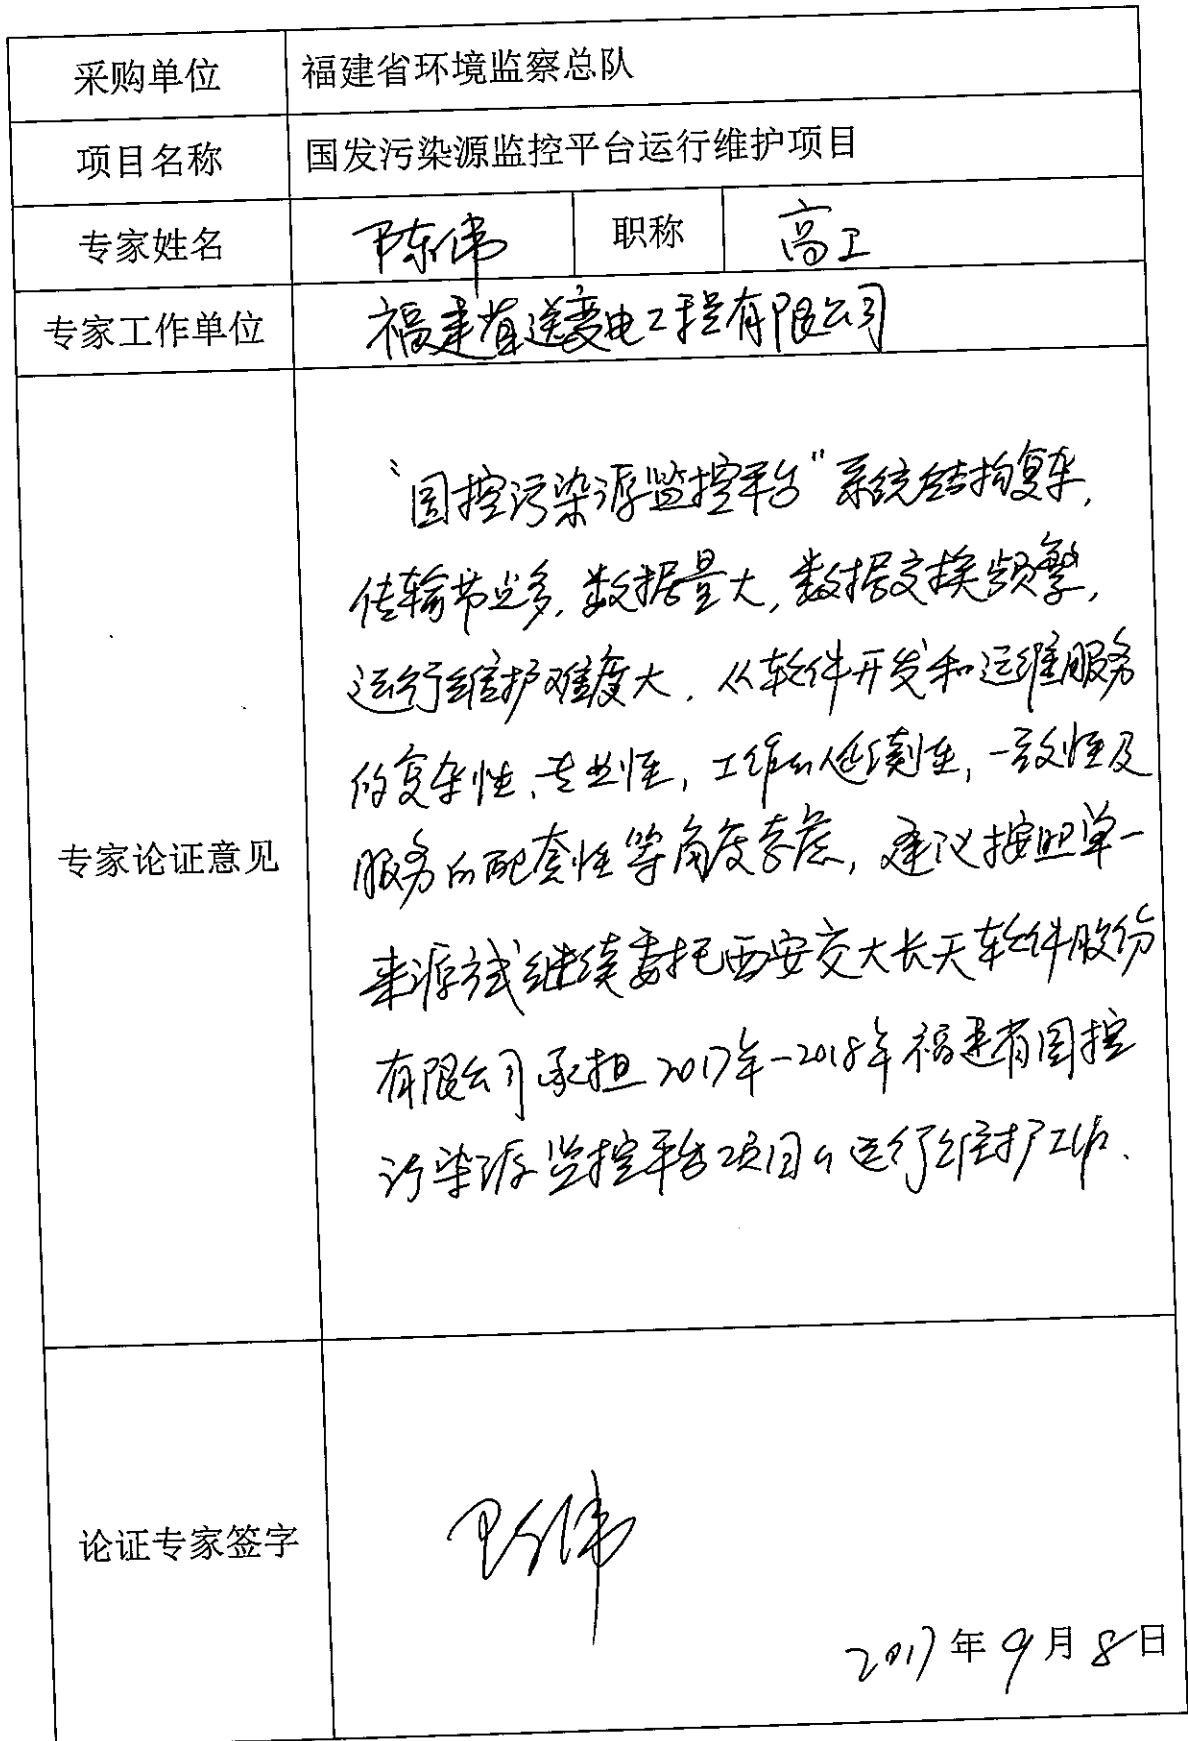 采购单位 福建省环境监察总队
项目名称 国发污染源监控平台运行维护项目
专家姓名 陈伟 职称 高工
专家工作单位 福建省送变电工程有限公司
专家论证意见
“国控污染源监控平台”系统结构复杂,
传输节点多,数据量大,数据交换频繁,
运行维护难度大.从软件开发和运维服务
的复杂性、专业性,工作的延续性,一致性及
服务的配套性等角度考虑,建议按照单一
来源式继续委托西安交大长天软件股份
有限公司承担2017年-2018年福建省国控
污染源监控平台项目的运行维护工作.
论证专家签字 陈伟
2017年9月8日